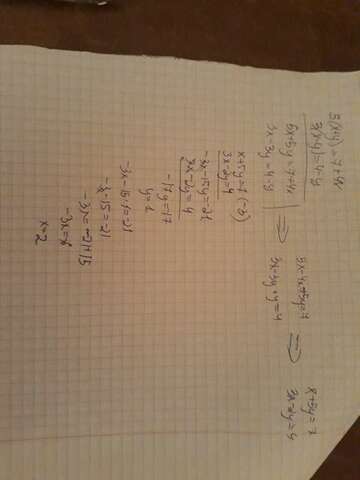 5(x+y) = 7+4x
3(x-y) = 4-y
5x+5y = 7+4x ⇒ 5x-4x+5y=7 ⇒ x+5y=7
3x-3y = 4-y 3x-3y+y=4 3x-2y=4
x+5y=7 (-3)
3x-2y=4
-3x-15y=-21
3x-2y=4
-17y=-17
y=1
-3x-15·1=-21
-3x-15=-21
-3x=-21+15
-3x=-6
x=2